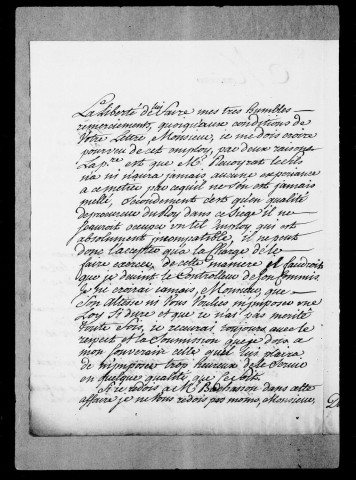 La liberté de luy faire mes tres humbles
remerciements, quoiqu'aux conditions de
Votre Lettre, Monsieur, je me dois croire
pourvu de cet employ, par deux raisons
La pre est que Mr le fils
n'a ni n'aura jamais aucune experience
a ce metier parcequil ne s'en est jamais
mellé, Secondement c'est qu'en qualité
de procureur du Roy dans ce Siege il ne
sauroit occuper un tel employ qui est
absolument incompatible, il ne peut
donc l'accepter qu'a la charge de le
faire exercer, de cette maniere il faudroit
que je devinse le Controlleur de son Commis
Je ne croirai jamais, Monsieur, que
Son Altesse ni Vous Vouliés m'imposer une
Loy Si dure et que je n'ai pas merité
toute fois, je recevrai toujours avec le
respect et la Soumission que je dois a
mon Souverain celle qu'il luy plaira
de m'imposer trop heureux de le Servir
en quelque qualité que ce soit.
Si je redois a Mr dans cette
affaire je ne Vous redois pas moins, Monsieur,